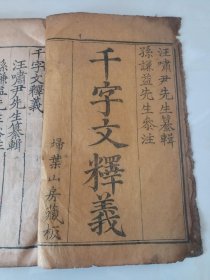 汪嘯尹先生纂輯
孫謙益先生參注
千字文釋義
埽葉山房藏板
千字文釋義
汪嘯尹先生纂輯
孫謙益先生參注